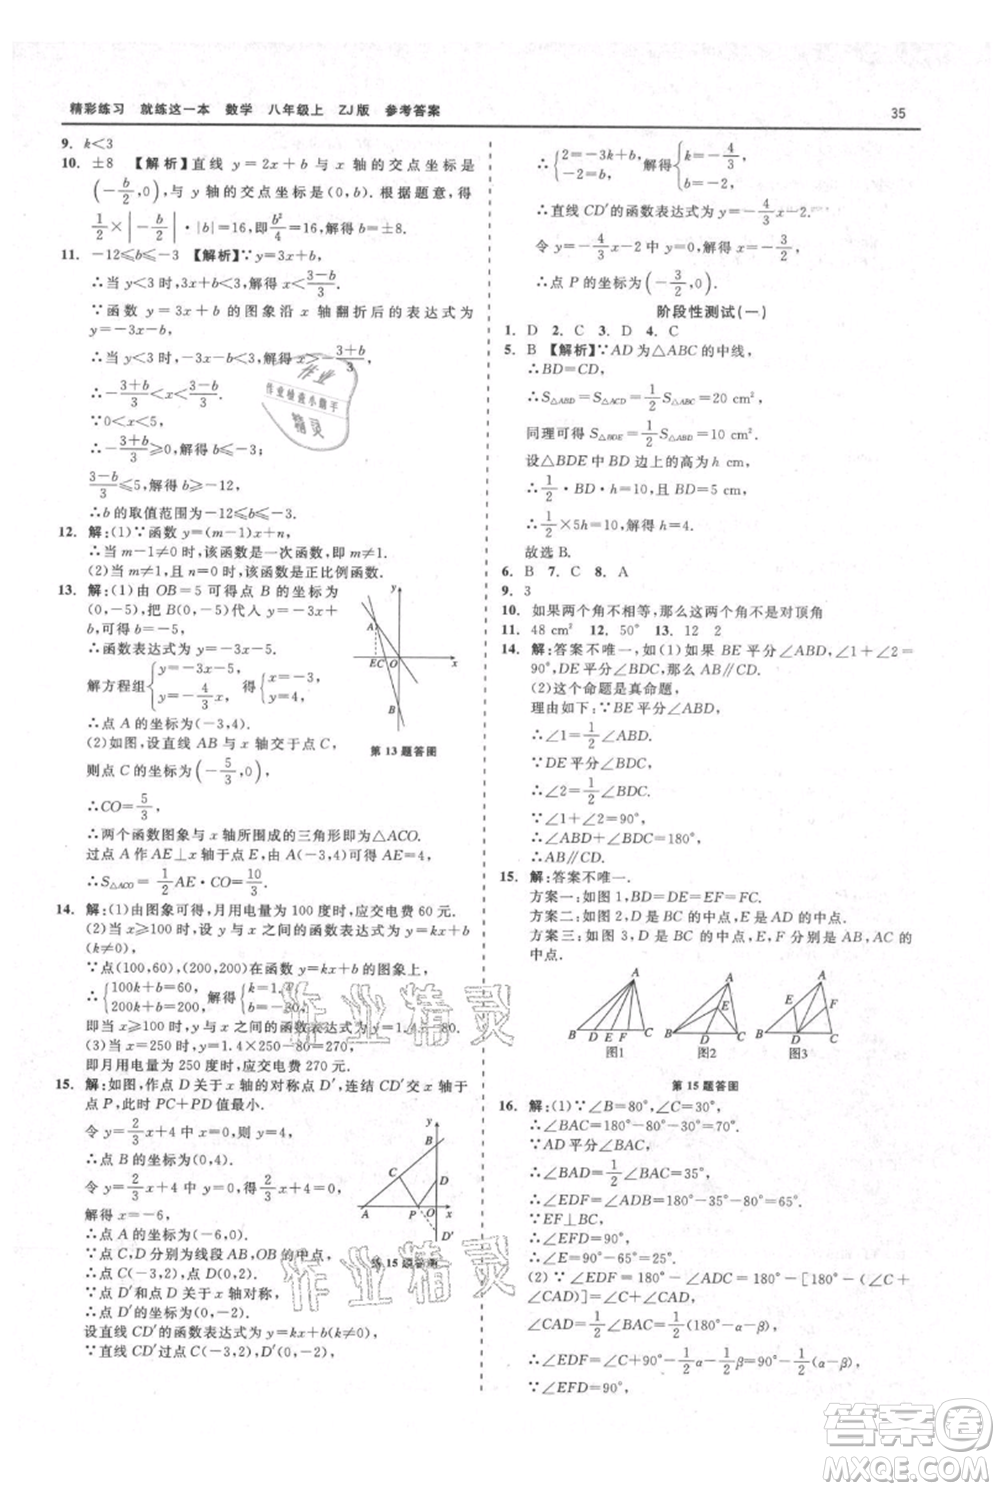 精彩练习 就练这一本 数学 八年级上 ZJ版 参考答案 35
9. k<3
10. ±8 【解析】直线 y=2x+b 与 x 轴的交点坐标是
(-b/2,0),与 y 轴的交点坐标是(0,b).根据题意,得
1/2×|-b/2|·|b|=16,即b²/4=16,解得 b=±8.
11. -12≤b≤-3 【解析】∵y=3x+b,
∴当 y<3 时,3x+b<3,解得 x<(3-b)/3.
∵函数 y=3x+b 的图象沿 x 轴翻折后的表达式为
y=-3x-b,
∴当 y<3 时,-3x-b<3,解得 x>-(3+b)/3,
∴-(3+b)/3<x<(3-b)/3.
∵0<x<5,
∴-(3+b)/3≤0,解得 b≥-3,
(3-b)/3≤5,解得 b≥-12,
∴b的取值范围为-12≤b≤-3.
12. 解:(1)∵函数 y=(m-1)x+n,
∴当 m-1≠0 时,该函数是一次函数.
(2)当 m-1≠0,n=0 时,该函数是正比例函数.
13. 解:(1)由 OB=5 可得点 B 的坐标为
(0,-5),把(0,-5)代入 y=-3x+b,
可得 b=-5,
∴函数表达式为 y=-3x-5.
解方程组{y=-3x-5, y=-4/3x, 得{x=-3, y=4,
∴点 A 的坐标为(-3,4).
(2)如图,设直线 AB 与 x 轴交于点 C,
则点 C 的坐标为(-5/3,0),
∴CO=5/3,
∴两个函数图象与 x 轴所围成的三角形即为△ACO.
过点 A 作 AE⊥x 轴于点 E,由 A(-3,4)可得 AE=4,
∴S△ACO=1/2AE·CO=10/3.
A E C O x B
第 13 题答图
14. 解:(1)由图象可得,月用电量为 100 度时,应交电费 60 元.
(2)当 x≥100 时,设 y 与 x 之间的函数表达式为 y=kx+b
(k≠0).
∵点(100,60),(200,200)在函数 y=kx+b 的图象上,
∴{100k+b=60, 200k+b=200, 解得{k=1.4, b=-80,
即当 x≥100 时,y 与 x 之间的函数表达式为 y=1.4x-80.
(3)当 x=250 时,y=1.4×250-80=270,
即月用电量为 250 度时,应交电费 270 元.
15. 解:如图,作点 D 关于 x 轴的对称点 D′,连结 CD′交 x 轴于
点 P,此时 PC+PD 值最小.
令 y=2/3x+4 中 x=0,则 y=4,
∴点 B 的坐标为(0,4).
令 y=2/3x+4 中 y=0,得2/3x+4=0,
解得 x=-6,
∴点 A 的坐标为(-6,0).
∵点 C,D 分别为线段 AB,OB 的中点,
∴点 C(-3,2),点 D(0,2).
∵点 D′和点 D 关于 x 轴对称,
∴点 D′的坐标为(0,-2).
设直线 CD′的函数表达式为 y=kx+b(k≠0),
∵直线 CD′过点 C(-3,2),D′(0,-2),
y B C A P x D′
第 15 题答图
∴{2=-3k+b, -2=b, 解得{k=-4/3, b=-2,
∴直线 CD′的函数表达式为 y=-4/3x-2.
令 y=-4/3x-2 中 y=0,解得 x=-3/2,
∴点 P 的坐标为(-3/2,0).
阶段性测试(一)
1. D 2. C 3. D 4. C
5. B 【解析】∵AD为△ABC 的中线,
∴BD=CD,
∴S△ABD=S△ACD=1/2S△ABC=20 cm²,
同理可得 S△BDE=1/2S△ABD=10 cm².
设△BDE 中 BD 边上的高为 h cm,
∴1/2·BD·h=10,BD=5 cm,
∴1/2×5h=10,解得 h=4.
故选 B.
6. B 7. C 8. A
9. 3
10. 如果两个角不相等,那么这两个角不是对顶角
11. 48 cm² 12. 50° 13. 12 2
14. 解:答案不唯一,如(1)如果 BE 平分∠ABD,∠1+∠2=
90°,DE平分∠BDC,那么 AB∥CD.
(2)这个命题是真命题,
理由如下:∵BE平分∠ABD,
∴∠1=1/2∠ABD.
∵DE平分∠BDC,
∴∠2=1/2∠BDC.
∵∠1+∠2=90°,
∴∠ABD+∠BDC=180°,
∴AB∥CD.
15. 解:答案不唯一.
方案一:如图 1,BD=DE=EF=FC.
方案二:如图 2,D 是 BC 的中点,E 是 AD 的中点.
方案三:如图 3,D 是 BC 的中点,E,F 分别是 AB,AC 的
中点.
A B D E F C 图1
A E B D C 图2
A E F B D C 图3
第 15 题答图
16. 解:(1)∵∠B=80°,∠C=30°,
∴∠BAC=180°-80°-30°=70°.
∵AD平分∠BAC,
∴∠BAD=1/2∠BAC=35°,
∴∠EDF=∠BDA=180°-35°-80°=65°.
∵EF⊥BC,
∴∠E=90°-65°=25°.
(2)∵∠EDF=∠BDA=180°-α-[180°-(β+
∠CAD)]=β+∠CAD,
∠CAD=1/2∠BAC=1/2(180°-α-β),
∴∠EDF=1/2β+90°-1/2α.
∵∠EFD=90°,
作业
作业检查小助手
精灵
作业精灵
作业精灵
答案圈
MXQE.COM